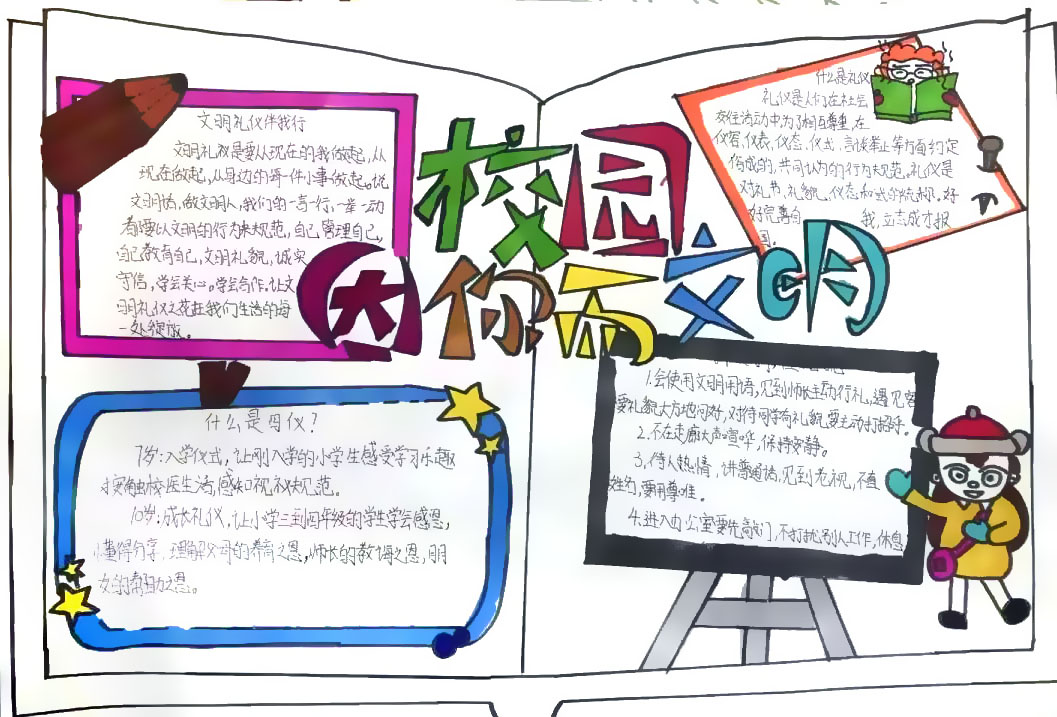 校园
因你而文明
文明礼仪伴我行
文明礼仪是要从现在的我做起,从
现在做起,从身边的每一件小事做起。说
文明话,做文明人,我们的一言一行,一举一动
都要以文明的行为来规范,自己管理自己,
自己教育自己,文明礼貌,诚实
守信,学会关心。学会合作。让文
明礼仪之花在我们生活的每
一处绽放。
什么是礼仪
礼仪是人们在社会
交往活动中,为了相互尊重,在
仪容,仪表,仪态,仪式,言谈举止等方面约定
俗成的,共同认为的行为规范。礼仪是
对礼节,礼貌,仪态和式的统称,好
好完善自我,立志成才报
国。
什么是
7岁:入学仪式,让刚入学的小学生感受学习乐趣
校生活,感知规范。
10岁:成长礼仪,让小学三到四年级的学生学会感恩,
懂得分享,理解父母的养育之恩,师长的教诲之恩,朋
友的帮助之恩。
1.会使用文明用语,见到师长主动行礼,遇见客
要礼貌大方地问好,对待同学有礼貌,要主动打招呼。
2.不在走廊大声喧哗,保持安静。
3,待人热情,讲普通话,见到老,不直
姓名,要用尊。
4.进入办公室要先敲门,不打扰别人工作,休息